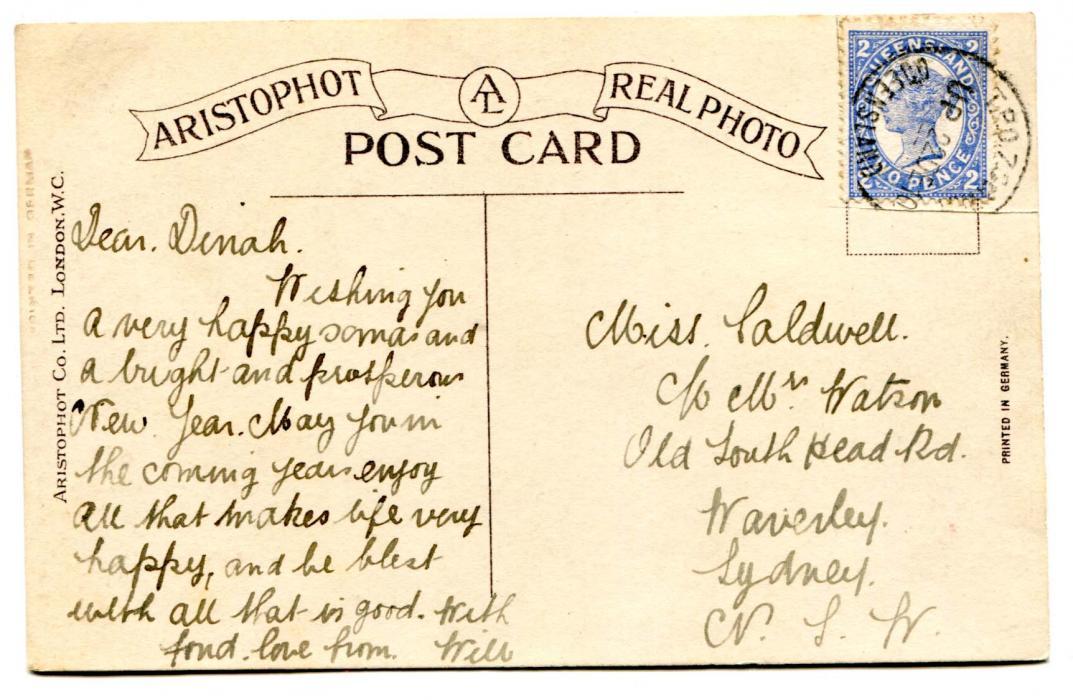 ARISTOPHOT
AL
REAL PHOTO
POST CARD
QUEENSLAND
TWO PENCE
2 2
2 2
UP
T.P.O.
ARISTOPHOT CO. LTD. LONDON. W.C.
PRINTED IN GERMANY.
Dear. Dinah.
Wishing you
a very happy xmas and
a bright and prosperous
New. Year. May you in
the coming years enjoy
all that makes life very
happy, and be blest
with all that is good. With
fond. love from. Will
Miss. Caldwell.
C/o Mrs Watson
Old South Head Rd.
Waverley.
Sydney.
N. S. W.